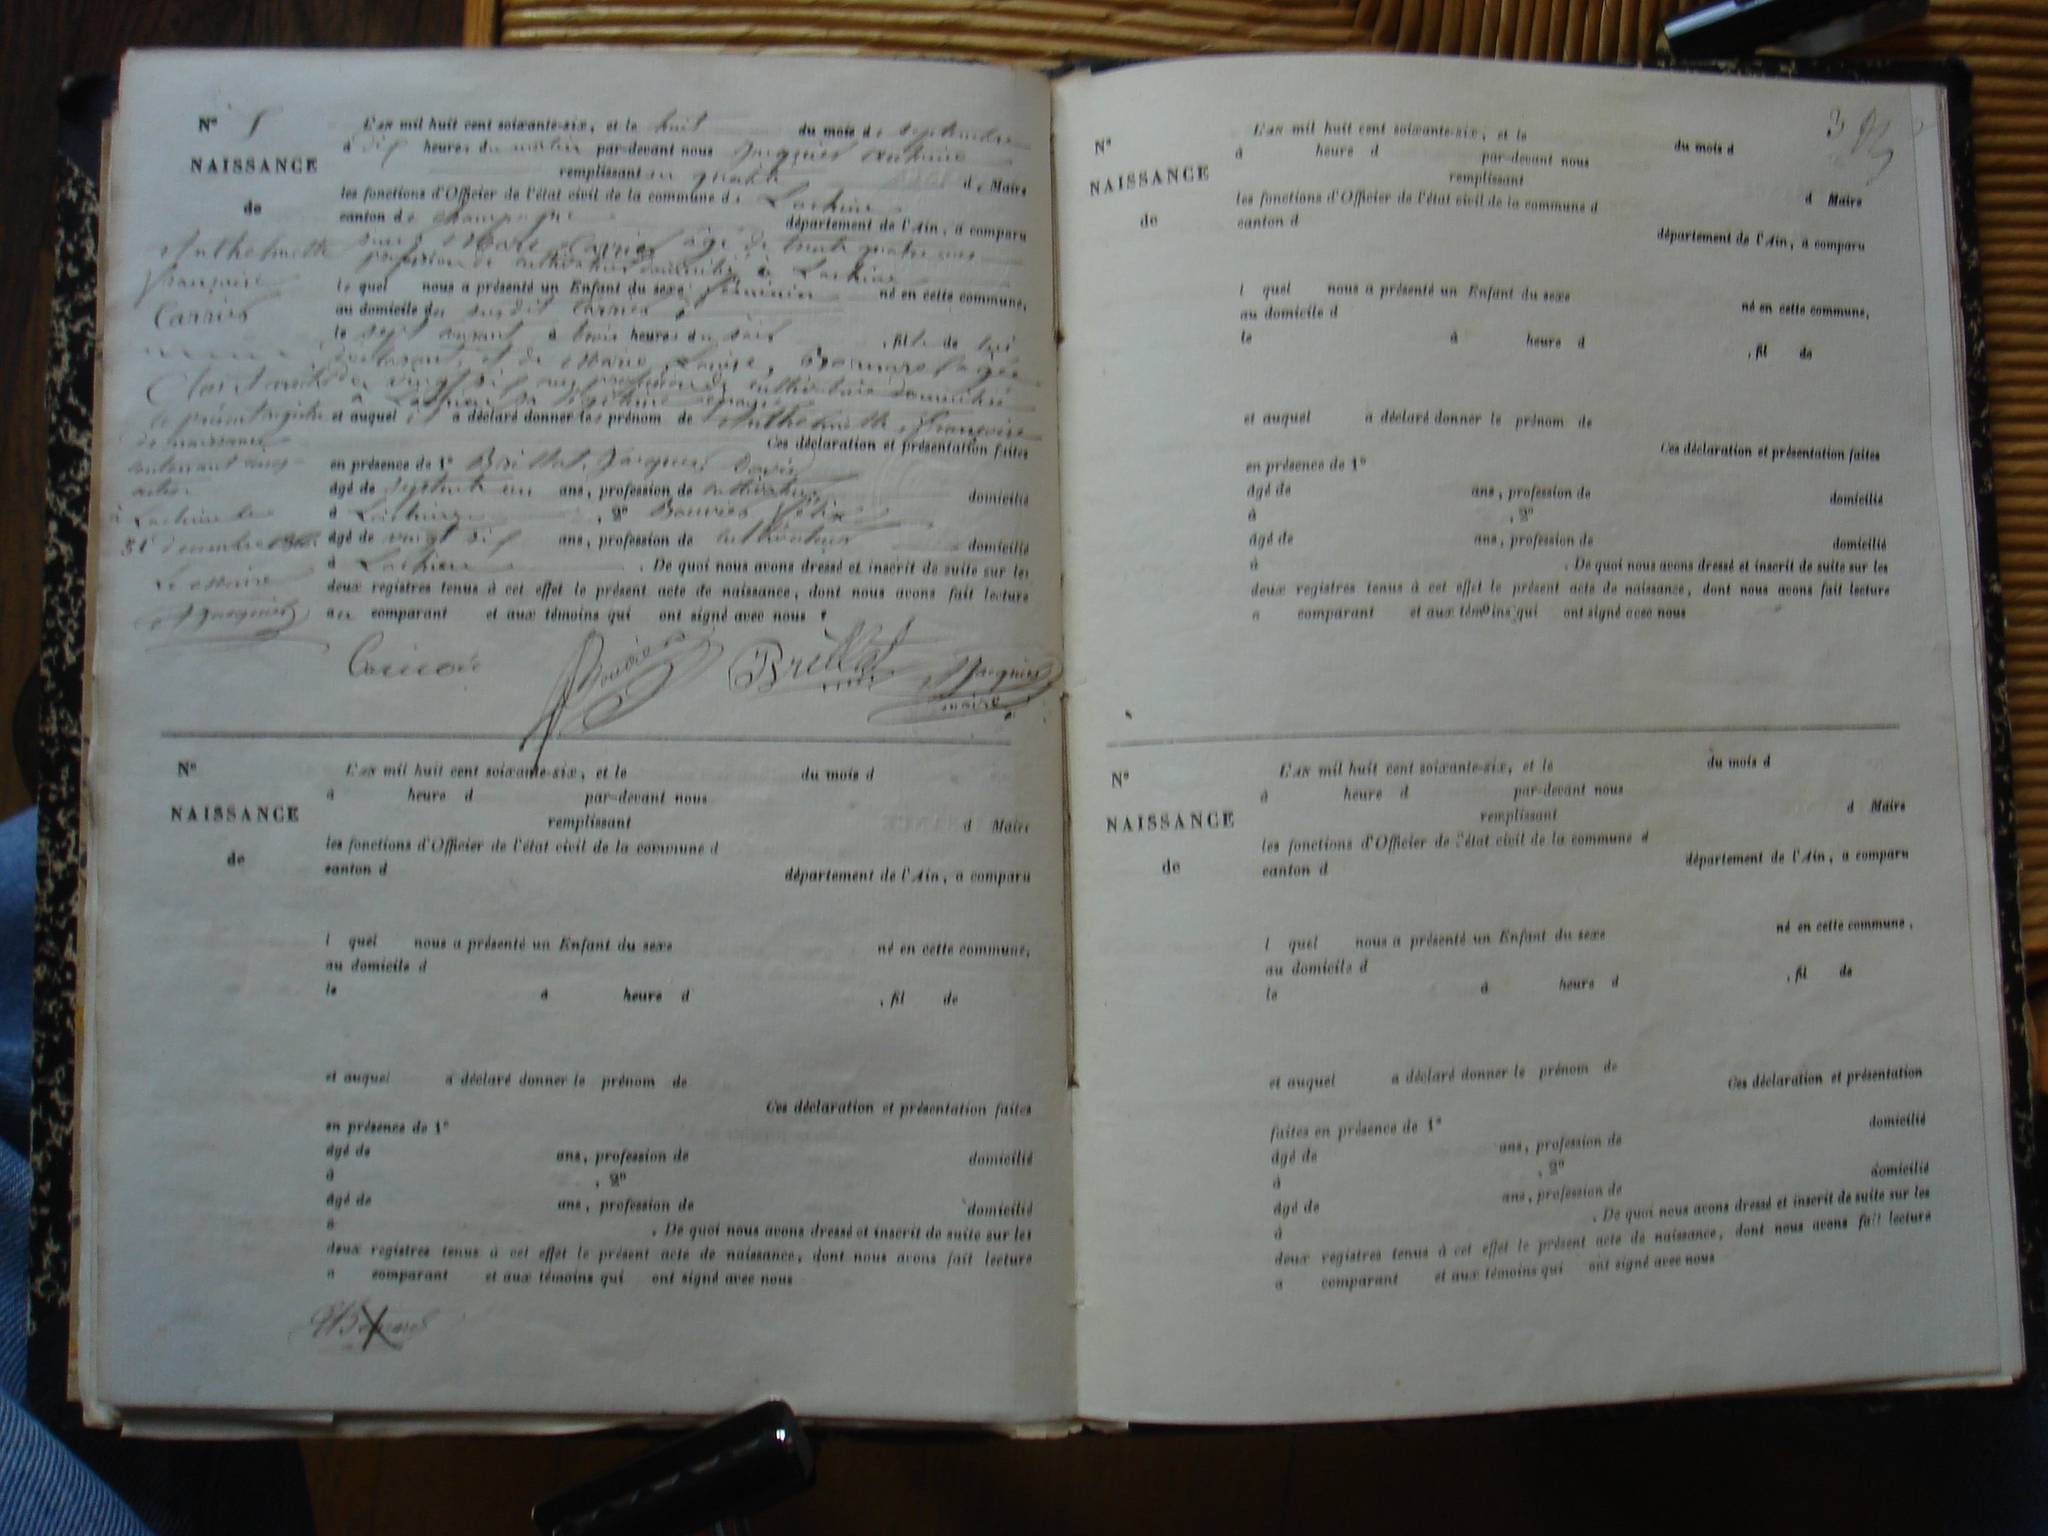 Nº 5
NAISSANCE
de
Anthelmette
françoise
Carrier
Clos
le présent registre
de naissance
contenant cinq
actes
à Lachieu le
31 décembre
Le Maire
Jacquier
L'AN mil huit cent soixante-six, et le huit du mois de septembre
à dix heures du matin par-devant nous Jacquier Antoine
remplissant en qualité de Maire
les fonctions d'Officier de l'état civil de la commune de
canton de champagne département de l'Ain, a comparu
Carrier âgé de trente quatre ans
profession de cultivateur domicilié à
le quel nous a présenté un Enfant du sexe féminin né en cette commune,
au domicile du sus dit Carrier,
le sept courant à trois heures du soir, fille de lui
déclarant, et de Marie Louise, âgée
de vingt six ans profession de cultivatrice domiciliée
à sa légitime
et auquel il a déclaré donner les prénom de Anthelmette françoise
Ces déclaration et présentation faites
en présence de 1º Brillat Jacques
âgé de septante un ans, profession de cultivateur domicilié
à , 2º Bouvier félix
âgé de vingt six ans, profession de cultivateur domicilié
à . De quoi nous avons dressé et inscrit de suite sur les
deux registres tenus à cet effet le présent acte de naissance, dont nous avons fait lecture
au comparant et aux témoins qui ont signé avec nous
Bouvier Brillat Jacquier
maire
Nº
NAISSANCE
de
L'AN mil huit cent soixante-six, et le du mois d
à heure d par-devant nous
remplissant d Maire
les fonctions d'Officier de l'état civil de la commune d
canton d département de l'Ain, a comparu
l quel nous a présenté un Enfant du sexe né en cette commune,
au domicile d
le à heure d , fil de
et auquel a déclaré donner le prénom de
Ces déclaration et présentation faites
en présence de 1º
âgé de ans, profession de domicilié
à , 2º
âgé de ans, profession de domicilié
à . De quoi nous avons dressé et inscrit de suite sur les
deux registres tenus à cet effet le présent acte de naissance, dont nous avons fait lecture
a comparant et aux témoins qui ont signé avec nous
3
Nº
NAISSANCE
de
L'AN mil huit cent soixante-six, et le du mois d
à heure d par-devant nous
remplissant d Maire
les fonctions d'Officier de l'état civil de la commune d
canton d département de l'Ain, a comparu
l quel nous a présenté un Enfant du sexe né en cette commune,
au domicile d
le à heure d , fil de
et auquel a déclaré donner le prénom de
Ces déclaration et présentation faites
en présence de 1º
âgé de ans, profession de domicilié
à , 2º
âgé de ans, profession de domicilié
à . De quoi nous avons dressé et inscrit de suite sur les
deux registres tenus à cet effet le présent acte de naissance, dont nous avons fait lecture
a comparant et aux témoins qui ont signé avec nous
Nº
NAISSANCE
de
L'AN mil huit cent soixante-six, et le du mois d
à heure d par-devant nous
remplissant d Maire
les fonctions d'Officier de l'état civil de la commune d
canton d département de l'Ain, a comparu
l quel nous a présenté un Enfant du sexe né en cette commune,
au domicile d
le à heure d , fil de
et auquel a déclaré donner le prénom de
Ces déclaration et présentation
faites en présence de 1º domicilié
âgé de ans, profession de
à , 2º domicilié
âgé de ans, profession de
à . De quoi nous avons dressé et inscrit de suite sur les
deux registres tenus à cet effet le présent acte de naissance, dont nous avons fait lecture
a comparant et aux témoins qui ont signé avec nous